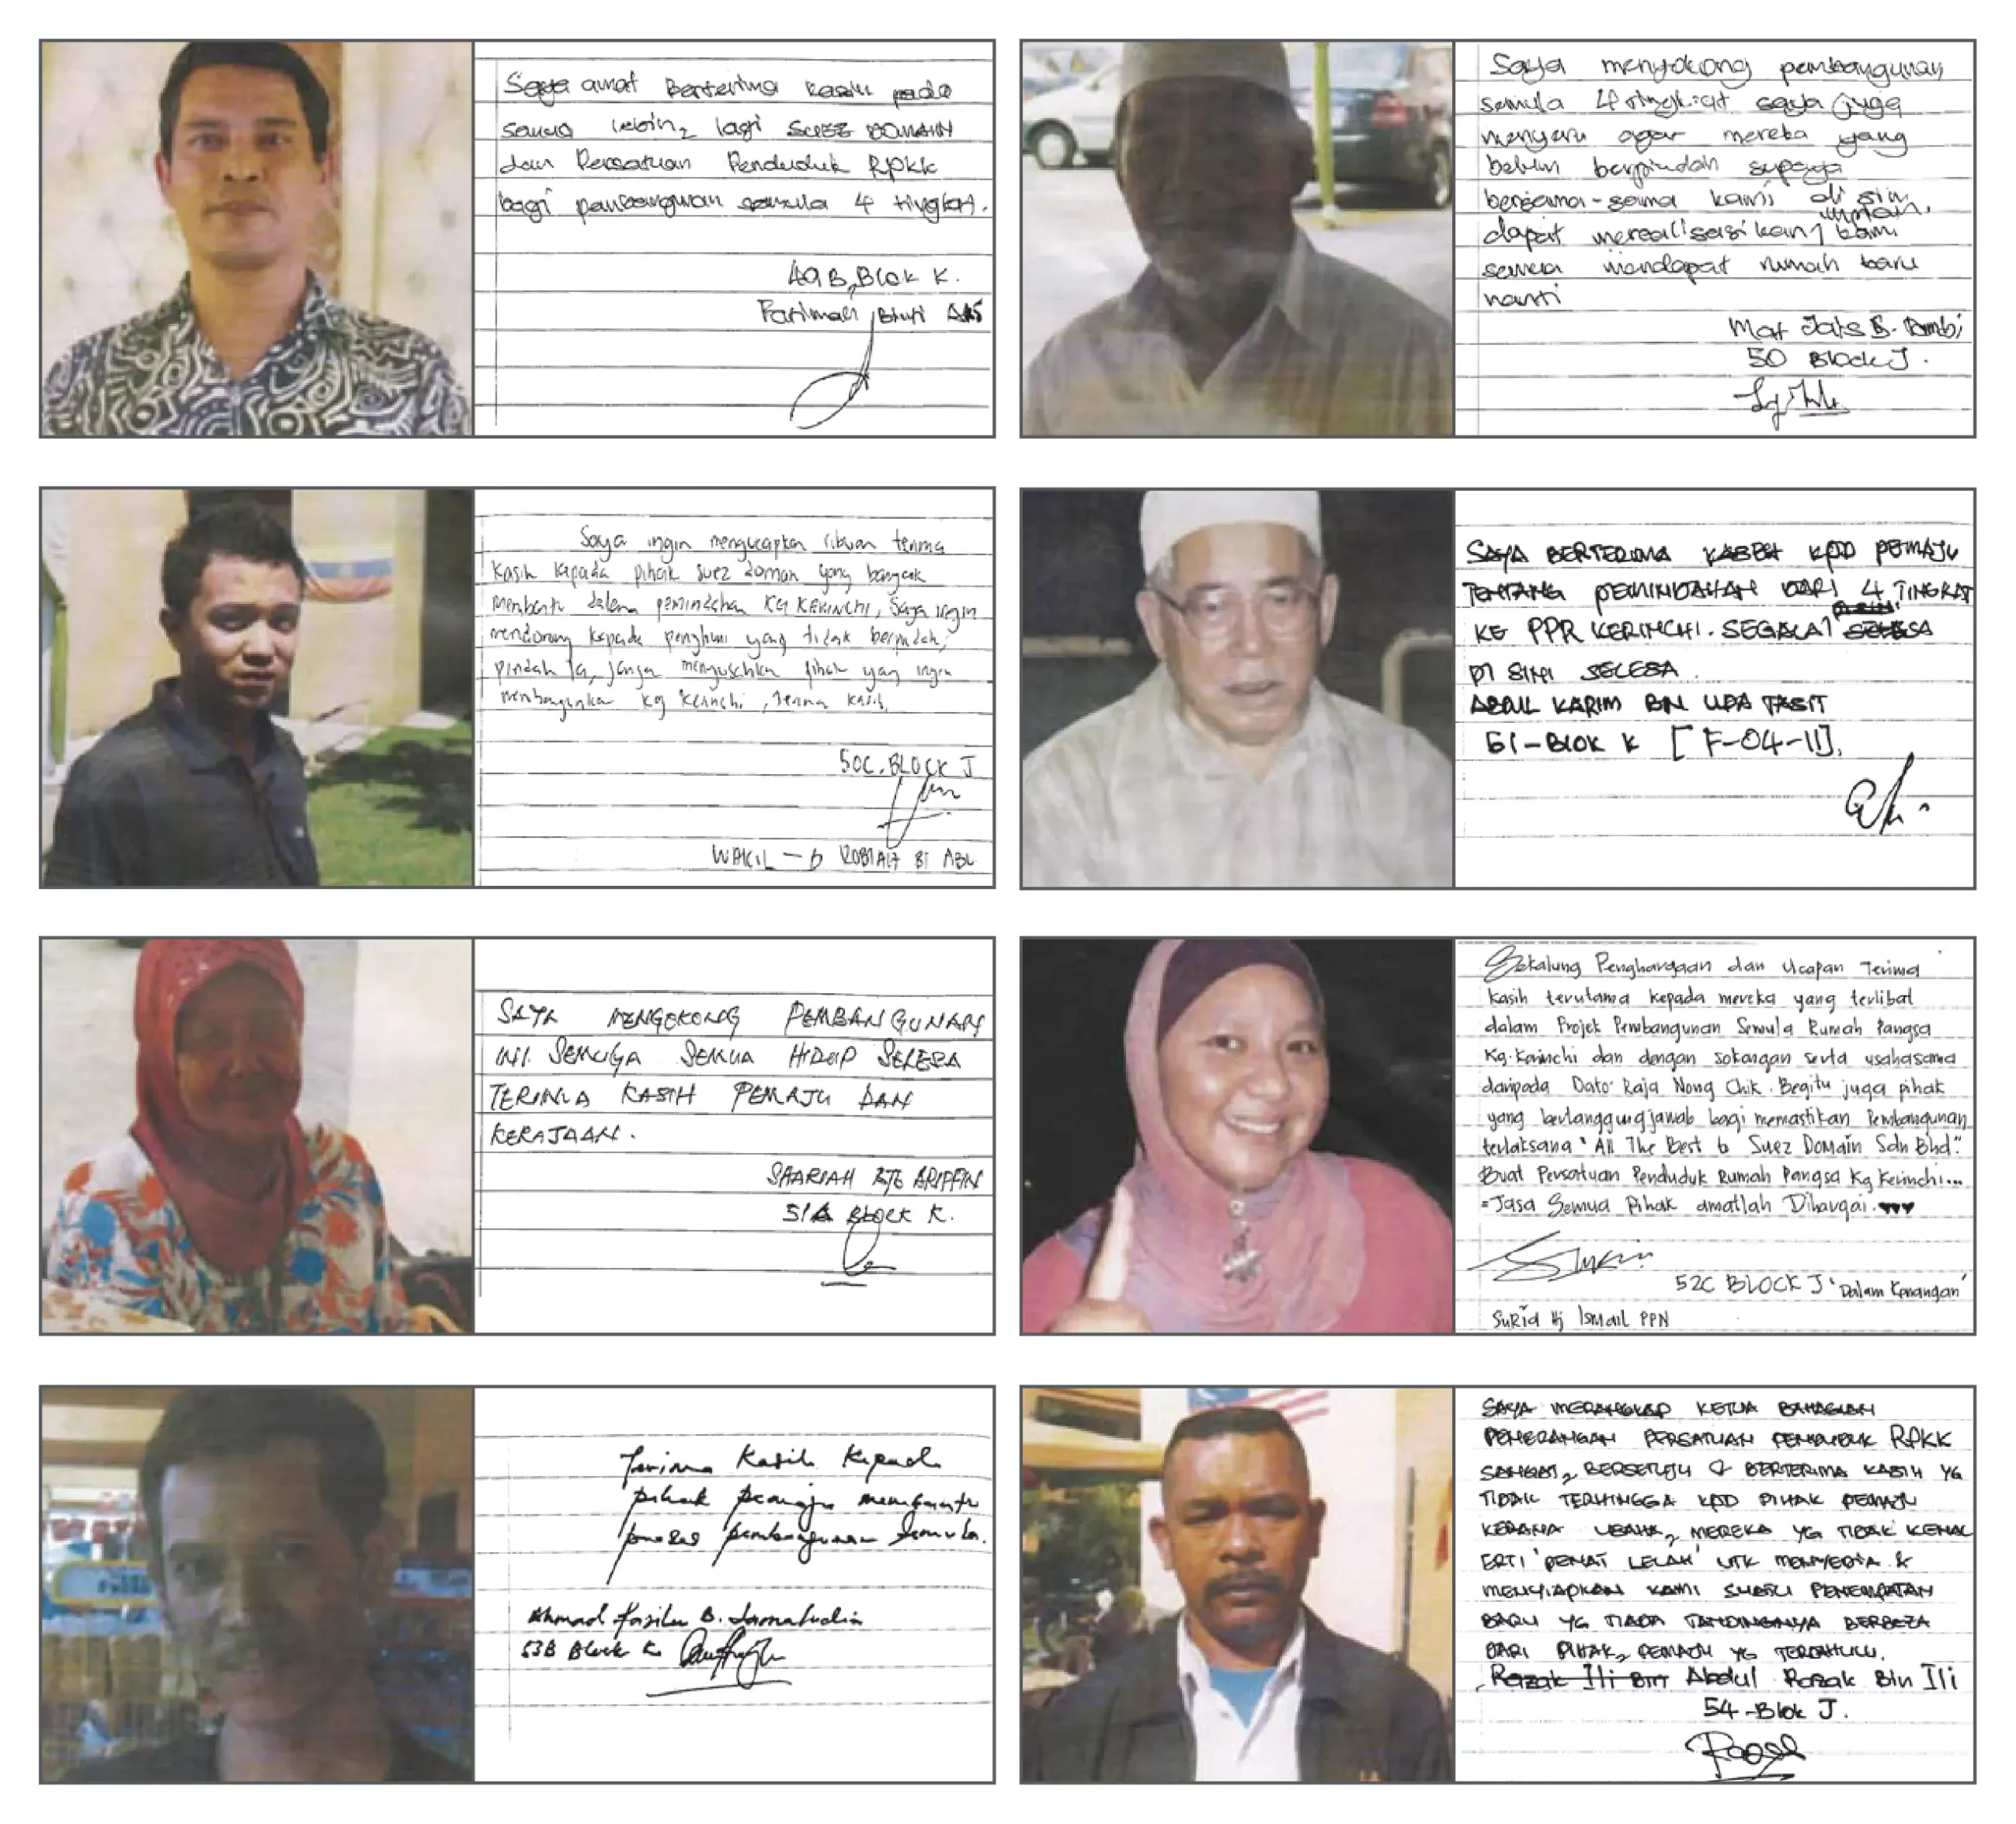 Saya amat Berterima kasih pada
semua lebih2 lagi SUEZ DOMAIN
dan Persatuan Penduduk RPKK
bagi pembangunan semula 4 tingkat.
49B, Blok K.
Fatimah Binti
Saya menyokong pembangunan
semula 4 tingkat saya juga
menyeru agar mereka yang
belum berpindah supaya
bersama-sama kami di sini
untuk
dapat merealisasikan kami
semua mendapat rumah baru
nanti
Mat Jais B. Tambi
50 Block J.
Saya ingin mengucapkan ribuan terima
kasih kepada pihak suez doman yang banyak
membantu dalam pemindahan KG KERINCHI, saya ingin
mendorong kepada penghuni yang tidak berpindah,
pindah la, jangan menyusahkan pihak yang ingin
membangunkan kg kerinchi, terima kasih.
50C. BLOCK J
WAKIL - ROBIAH BT
SAYA BERTERIMA KASEH KPD PEMAJU
TENTANG PEMINDAHAN DARI 4 TINGKAT
KE PPR KERINCHI. SEGALA2
DI SINI SELESA.
ABDUL KARIM BN UDA TASIT
51-BLOK K [F-04-11].
SAYA MENGOKONG PEMBANGUNAN
INI. SEMUGA SEMUA HIDUP SELESA
TERIMA KASIH PEMAJU DAN
KERAJAAN.
SHARIAH BTE ARIFFIN
51A BLOCK K.
Sekalung Penghargaan dan Ucapan Terima
kasih terutama kepada mereka yang terlibat
dalam Projek Pembangunan Semula Rumah Pangsa
Kg. Kerinchi dan dengan sokongan serta usahasama
daripada Dato' Raja Nong Chik. Begitu juga pihak
yang bertanggungjawab bagi memastikan Pembangunan
terlaksana "All The Best to Suez Domain Sdn Bhd."
Buat Persatuan Penduduk Rumah Pangsa Kg Kerinchi...
=Jasa Semua Pihak amatlah Dihargai. ♥♥♥
52C BLOCK J 'Dalam Kenangan'
SuRia Hj Ismail PPN
Terima Kasih Kepada
pihak pemaju membantu
proses pembangunan semula.
Ahmad Fazilu B. Jamaludin
53B Block K
SAYA MERANGKAP KETUA BAHAGIAN
PENERANGAN PERSATUAN PENDUDUK RPKK
SANGAT2 BERSETUJU & BERTERIMA KASIH YG
TIDAK TERHINGGA KPD PIHAK PEMAJU
KERANA USAHA2 MEREKA YG TIDAK KENAL
ERTI 'PENAT LELAH' UTK MENYEDIA &
MENYIAPKAN KAMI SUATU PENEMPATAN
BARU YG TIADA TANDINGANYA BERBEZA
DARI PIHAK2 PEMAJU YG TERDAHULU.
Razak Ili Bin Abdul Razak Bin Ili
54-Blok J.